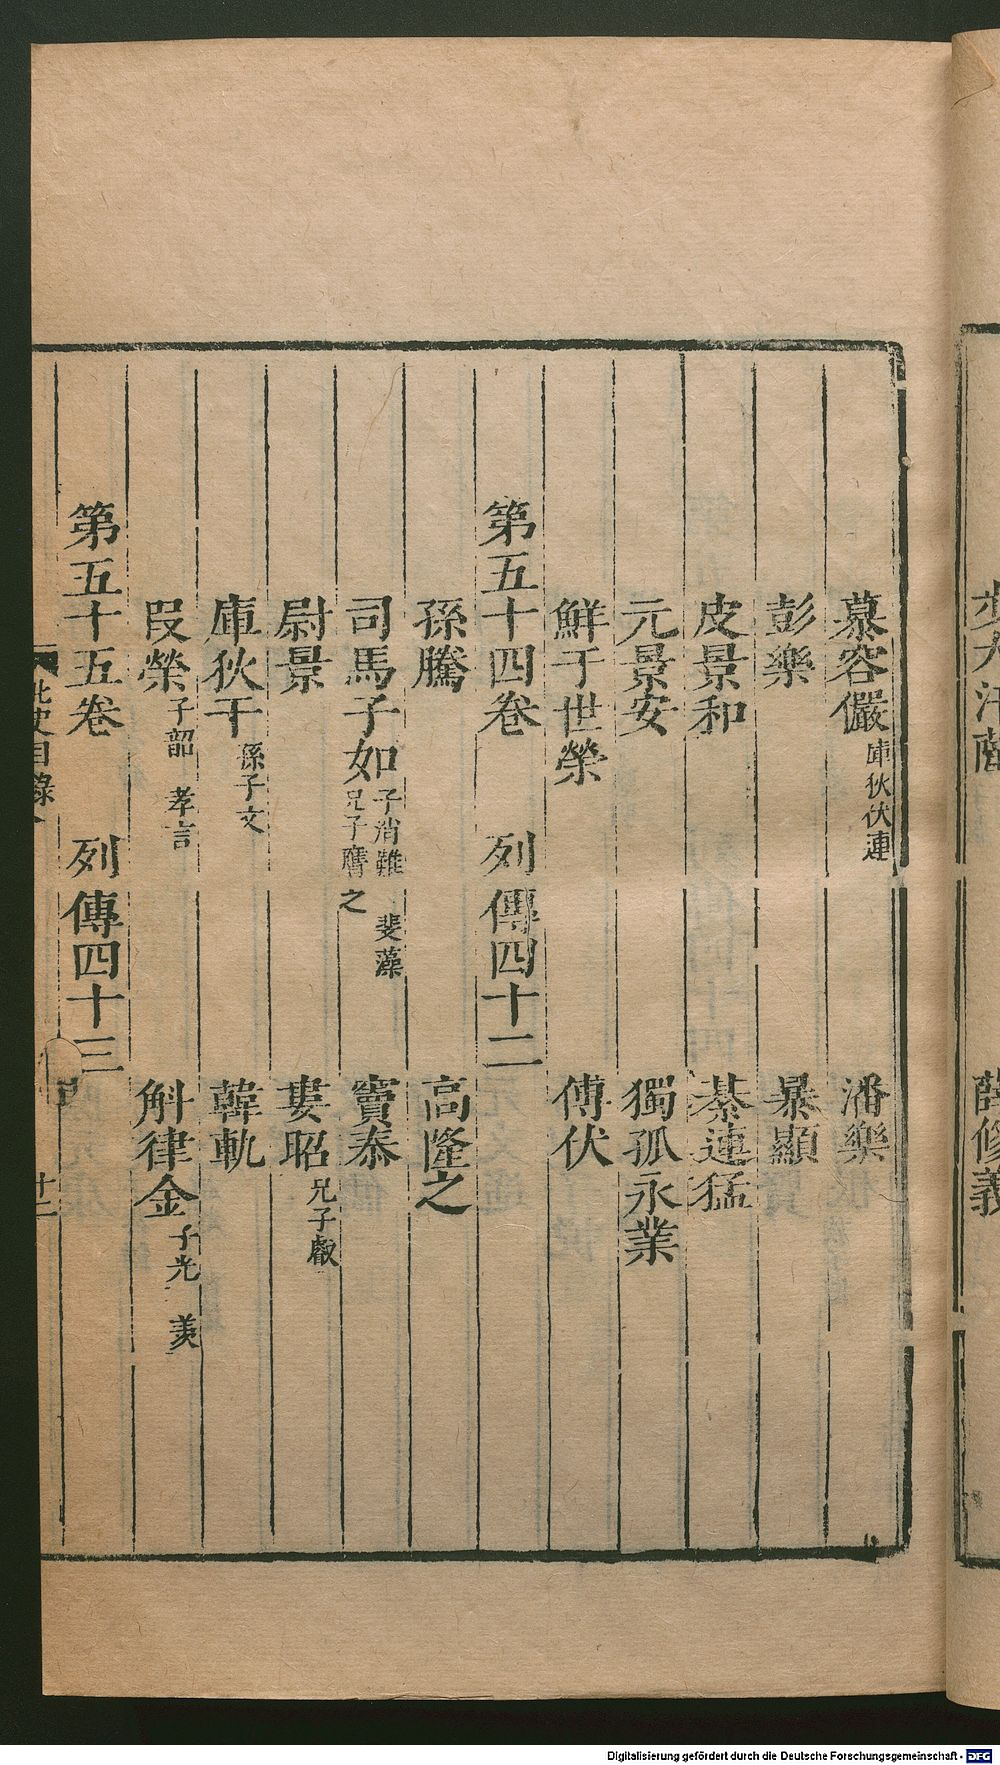 步大汗薩　薛修義
慕容儼庫狄伏連　潘樂
彭樂　暴顯
皮景和　綦連猛
元景安　獨孤永業
鮮于世榮　傅伏
第五十四卷　列傳四十二
孫騰　高隆之
司馬子如子消難　裴藻兄子膺之　竇泰
尉景　婁昭兄子叡
庫狄干孫子文　韓軌
段榮子韶　孝言　斛律金子光　羨
第五十五卷　列傳四十三
北史目錄
廿二
Digitalisierung gefördert durch die Deutsche Forschungsgemeinschaft - DFG